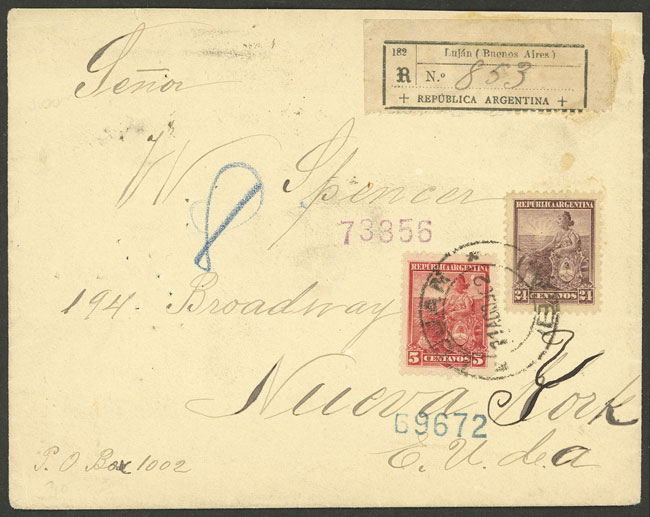 182 Luján (Buenos Aires)
R N.º 853
+ REPÚBLICA ARGENTINA +
Señor
W Spencer
73856
REPUBLICA ARGENTINA
24 CENTAVOS 24
194. Broadway
REPUBLICA ARGENTINA
5 CENTAVOS 5
LUJAN
Nueva York
69672
E. U. de a
P. O Box 1002